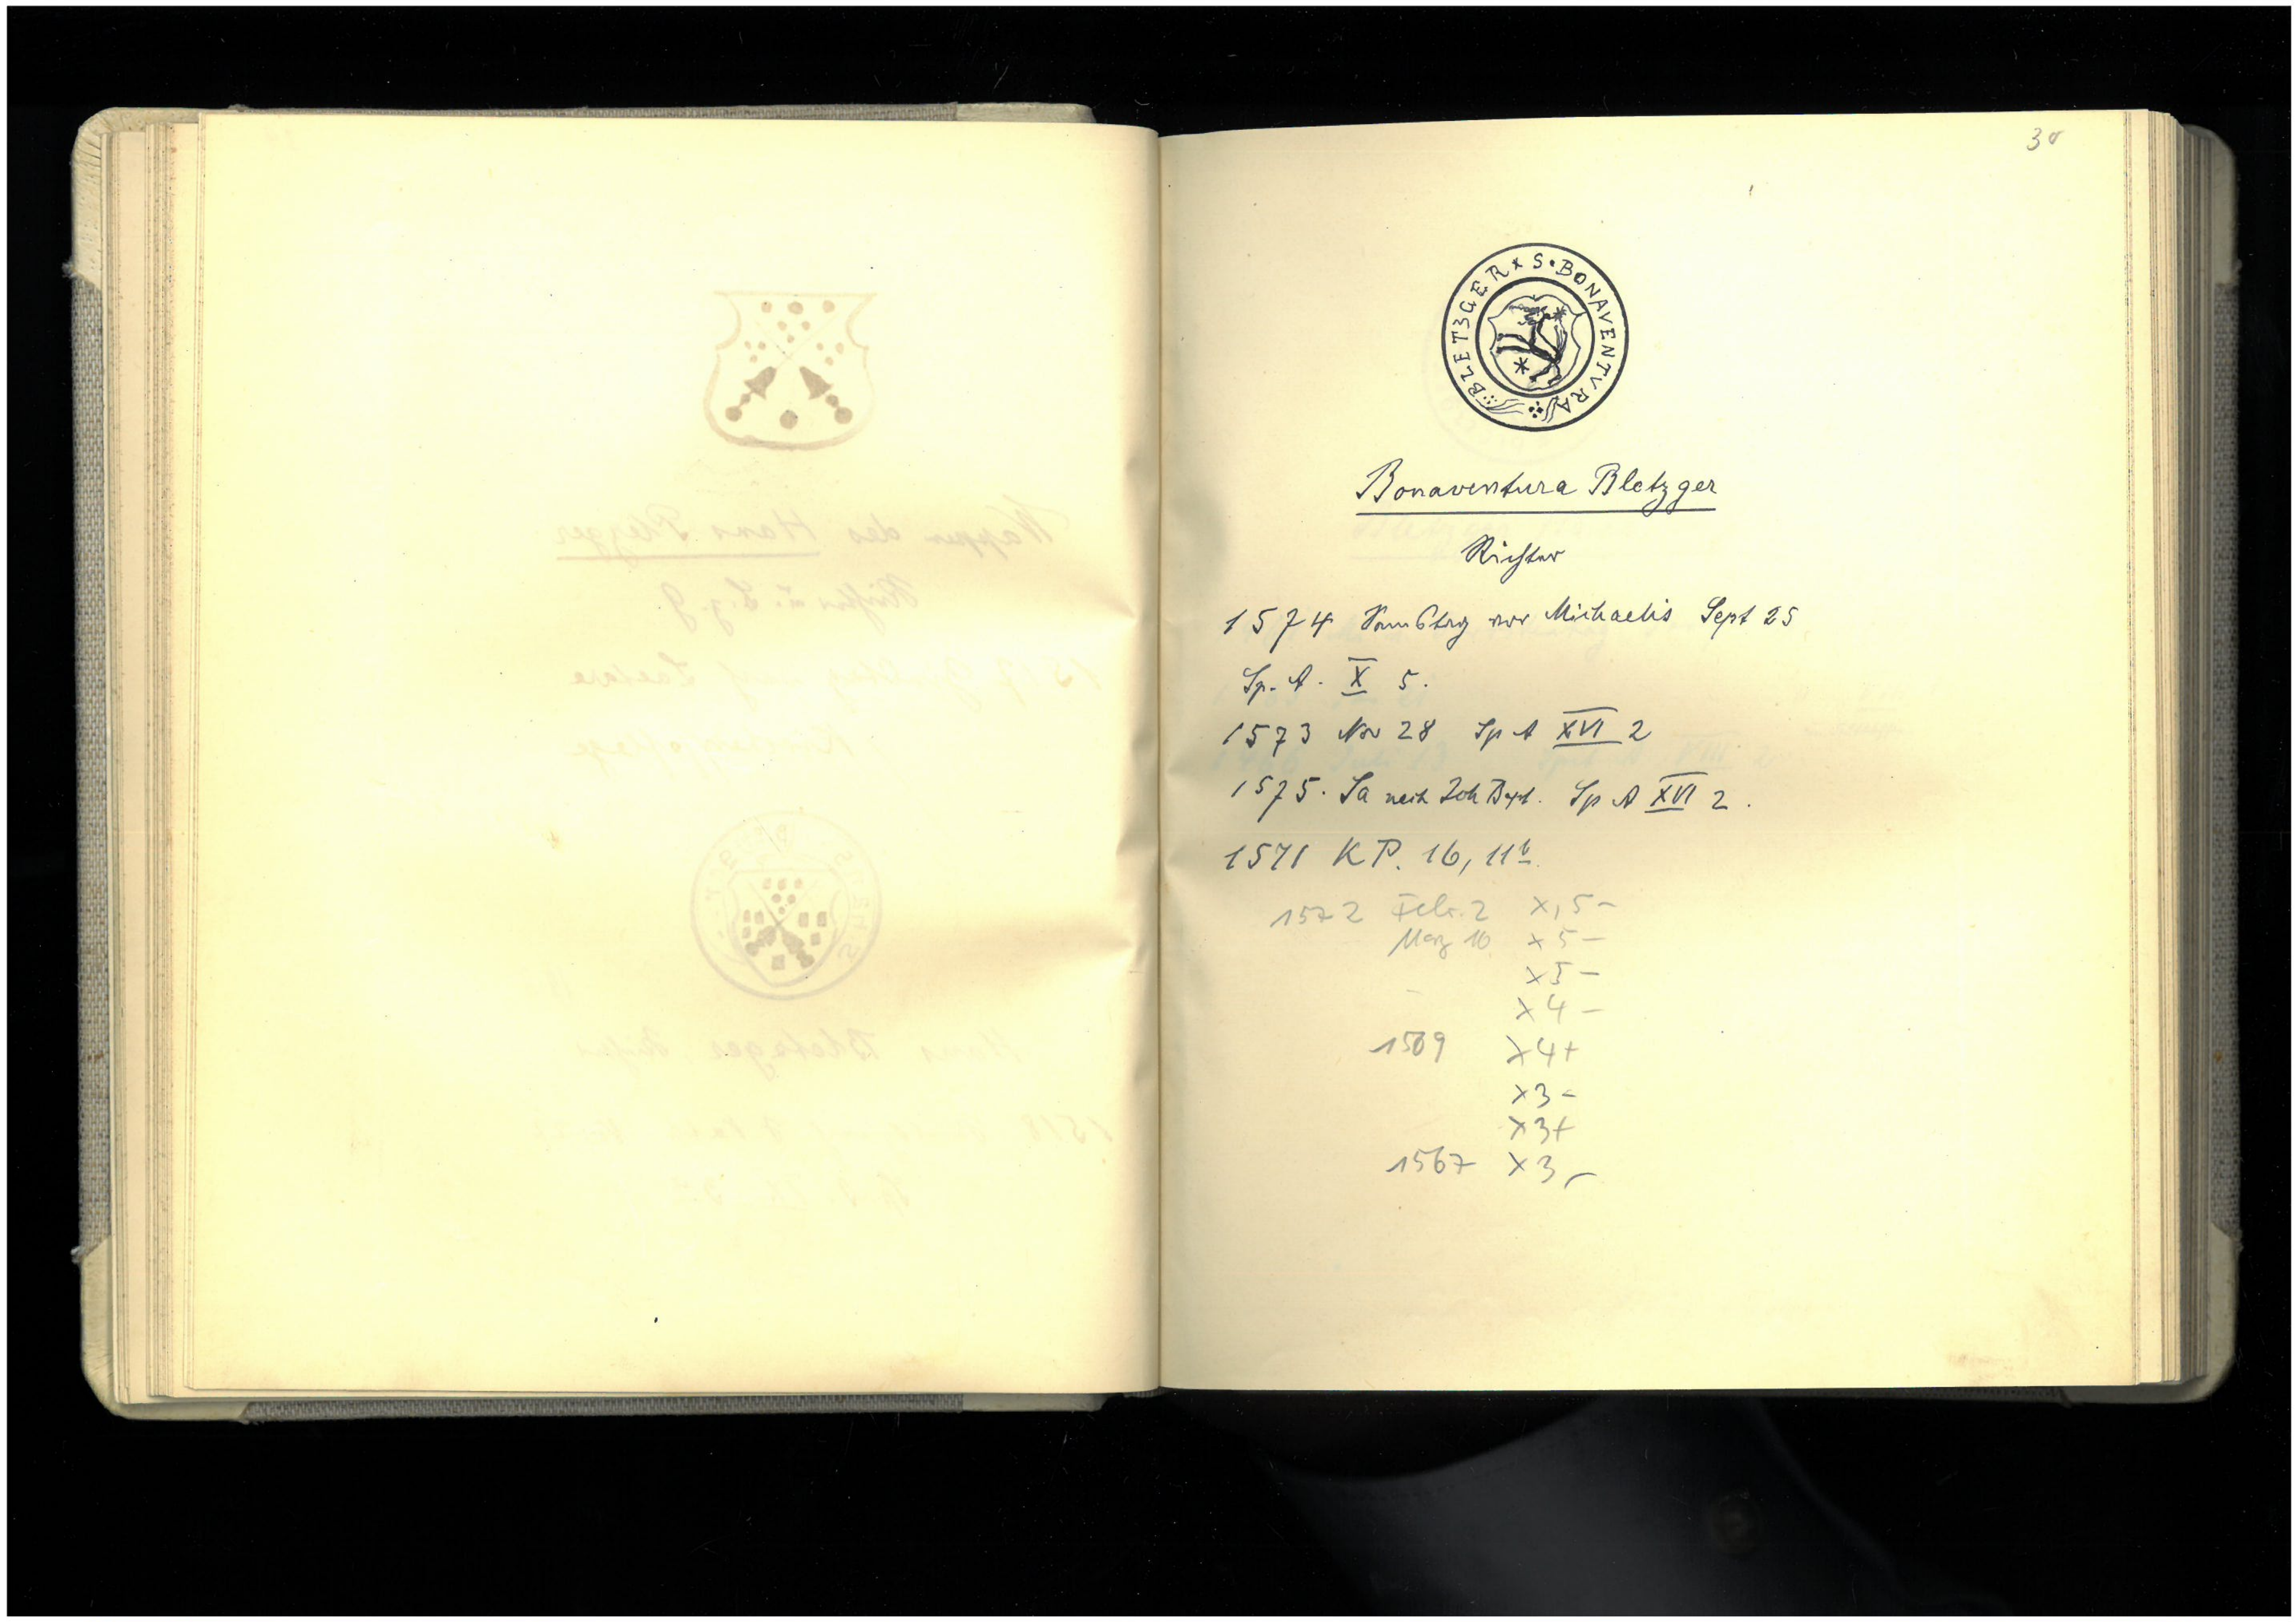 30
S • BONAVENTVRA BLETZGER
Bonaventura Bletzger
Richter
1574 Samstag vor Michaelis Sept 25
Sp. A. X 5.
1573 Nov 28 Sp A XVI 2
1575. Sa nach Joh Bapt. Sp A XVI 2.
1571 KP. 16, 11b.
1572 Febr. 2 X, 5 -
März 10 X 5 -
X 5 -
X 4 -
1569 X 4 +
X 3 -
X 3 +
1567 X 3 -